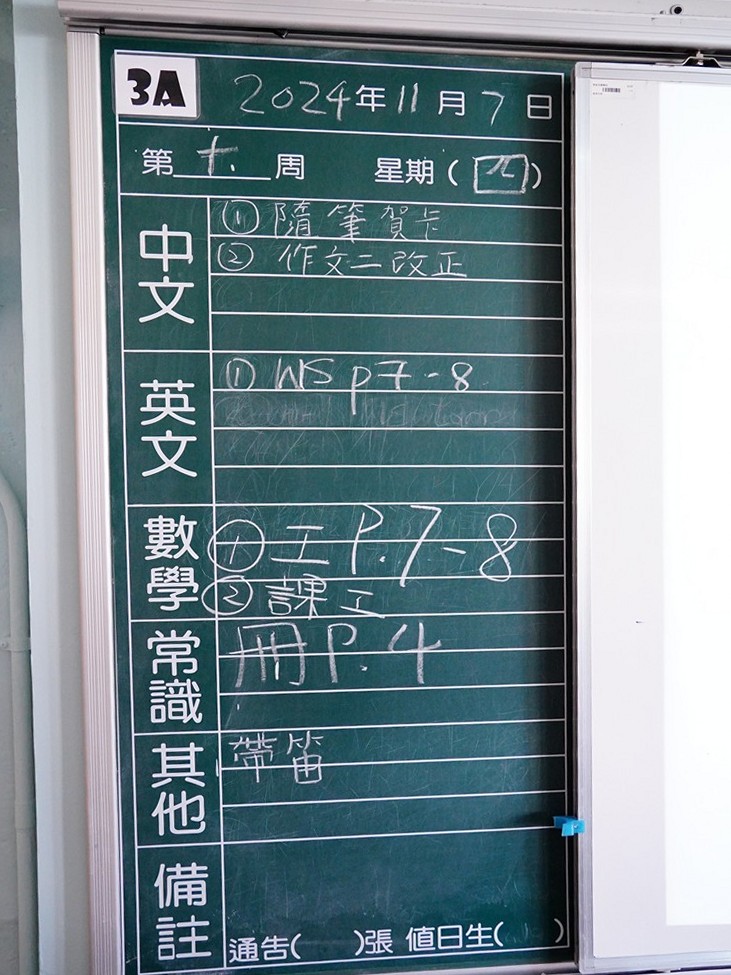 3A 2024年11月7日
第十周 星期(四)
中文
① 隨筆賀卡
② 作文二改正
英文
① WS p7-8
數學
① 工 P.7-8
② 課工
常識
冊 P.4
其他
帶笛
備註
通告( )張 值日生( )